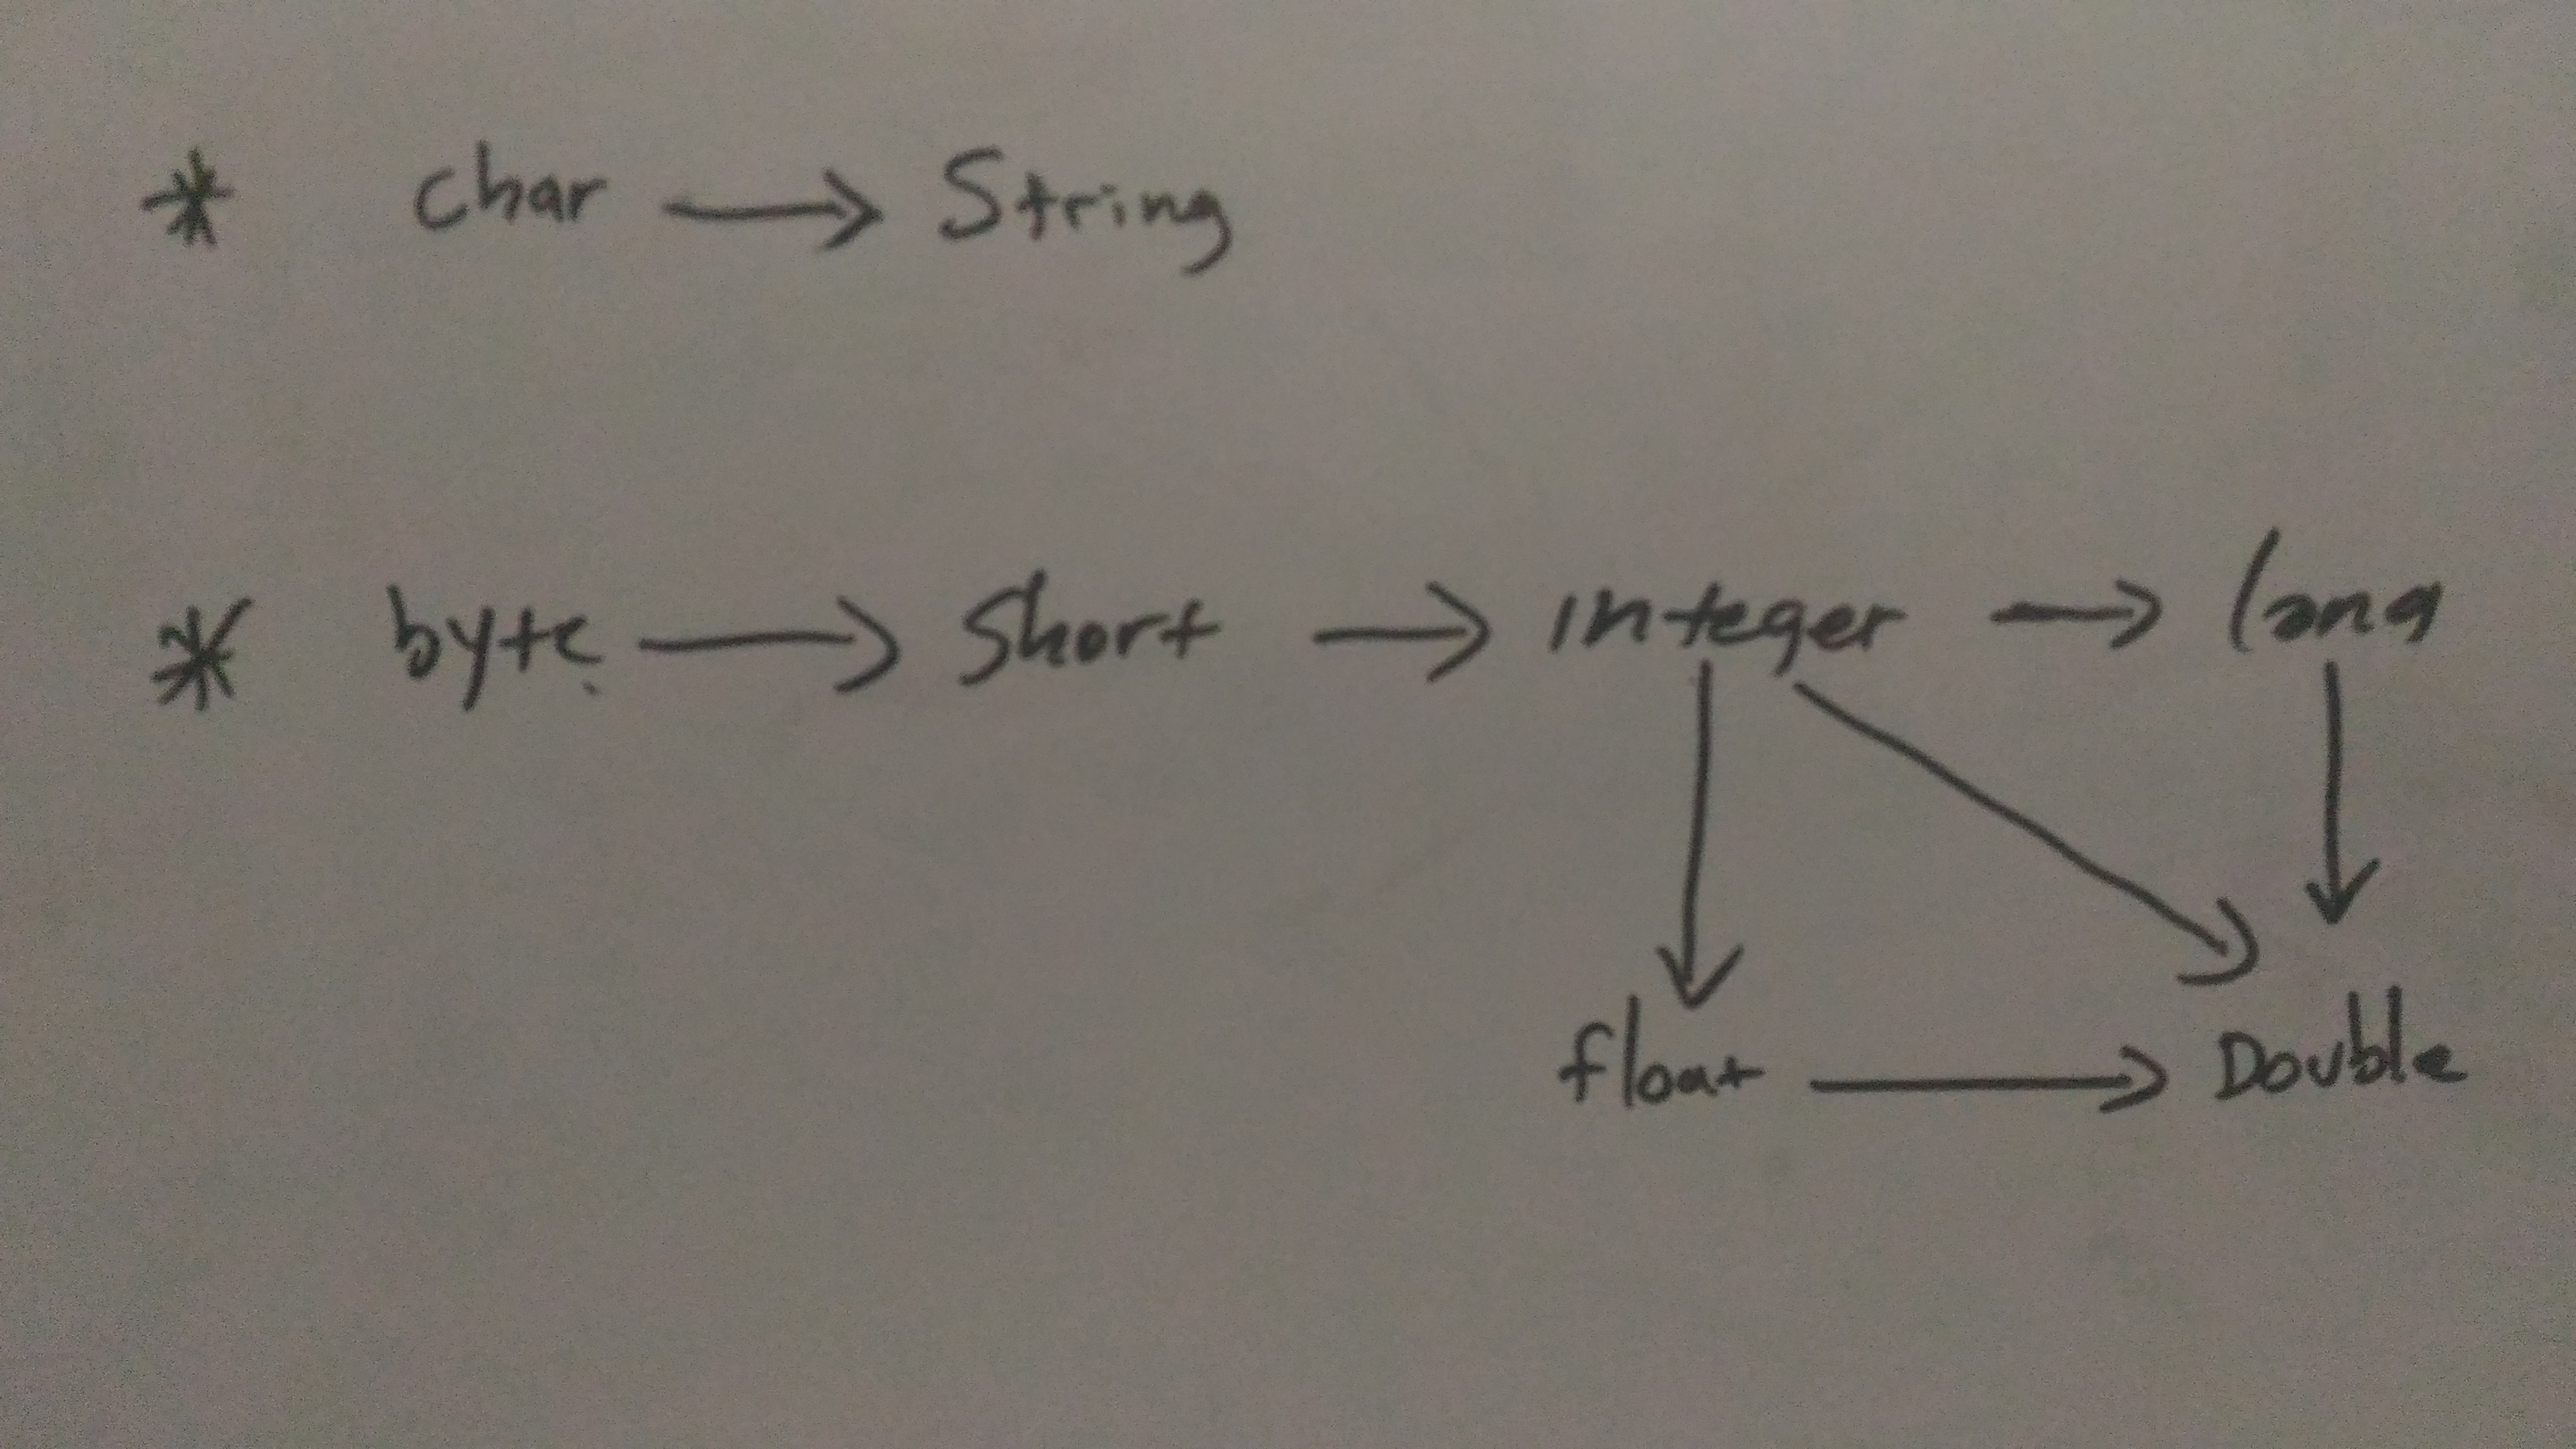 * char → String
* byte → Short → integer → long
float → Double